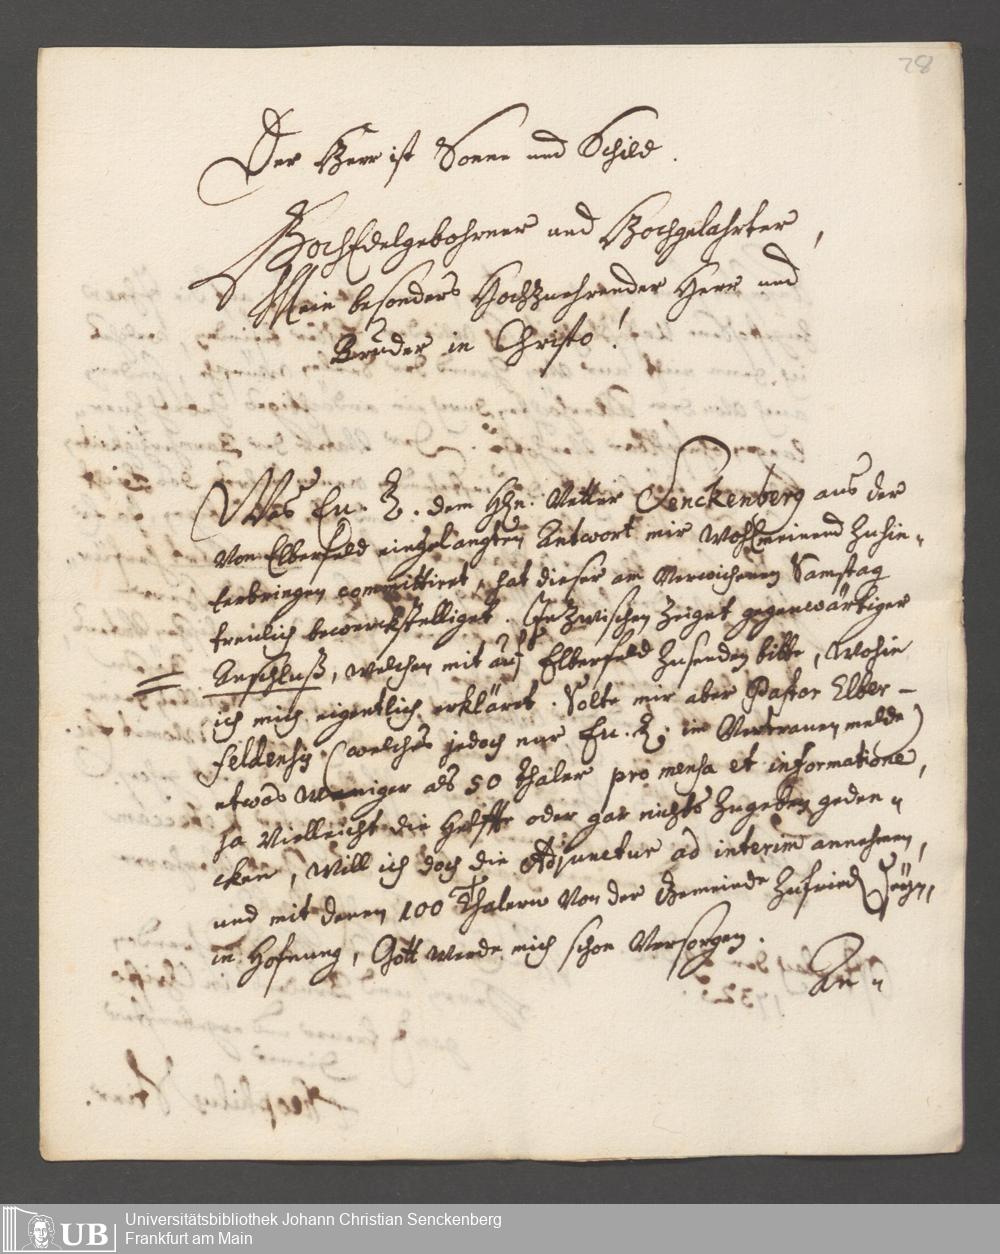 28
Der Herr ist Sonne und Schild.
HochEdelgebohrner und Hochgelahrter,
Mein besonders Hochzuehrender Herr und
Bruder in Christo!
Was Eu. H. dem Hrn. Vetter Senckenberg aus der
von Elberfeld eingelangten Antwort mir wohlmeinend zu hin-
terbringen committiret, hat dieser am verwichenen Samstag
treulich bewerckstelliget. Inzwischen zeiget gegenwärtiger
Anschluß, welchen mit auf Elberfeld zu senden bitte, wohin
ich mich eigentlich erkläret. Solte mir aber Pastor Elber-
feldensis (welches jedoch nur Eu. H. im Vertrauen melde)
etwas weniger als 50 Thaler pro mensa et informatione,
ja vielleicht die Helffte oder gar nichts zu geben geden-
cken, will ich doch die Adjunctur ad interim annehmen,
und mit denen 100 Thalern von der Gemeinde zufrieden seyn,
in Hofnung, Gott werde mich schon versorgen.
An-
UB Universitätsbibliothek Johann Christian Senckenberg
Frankfurt am Main